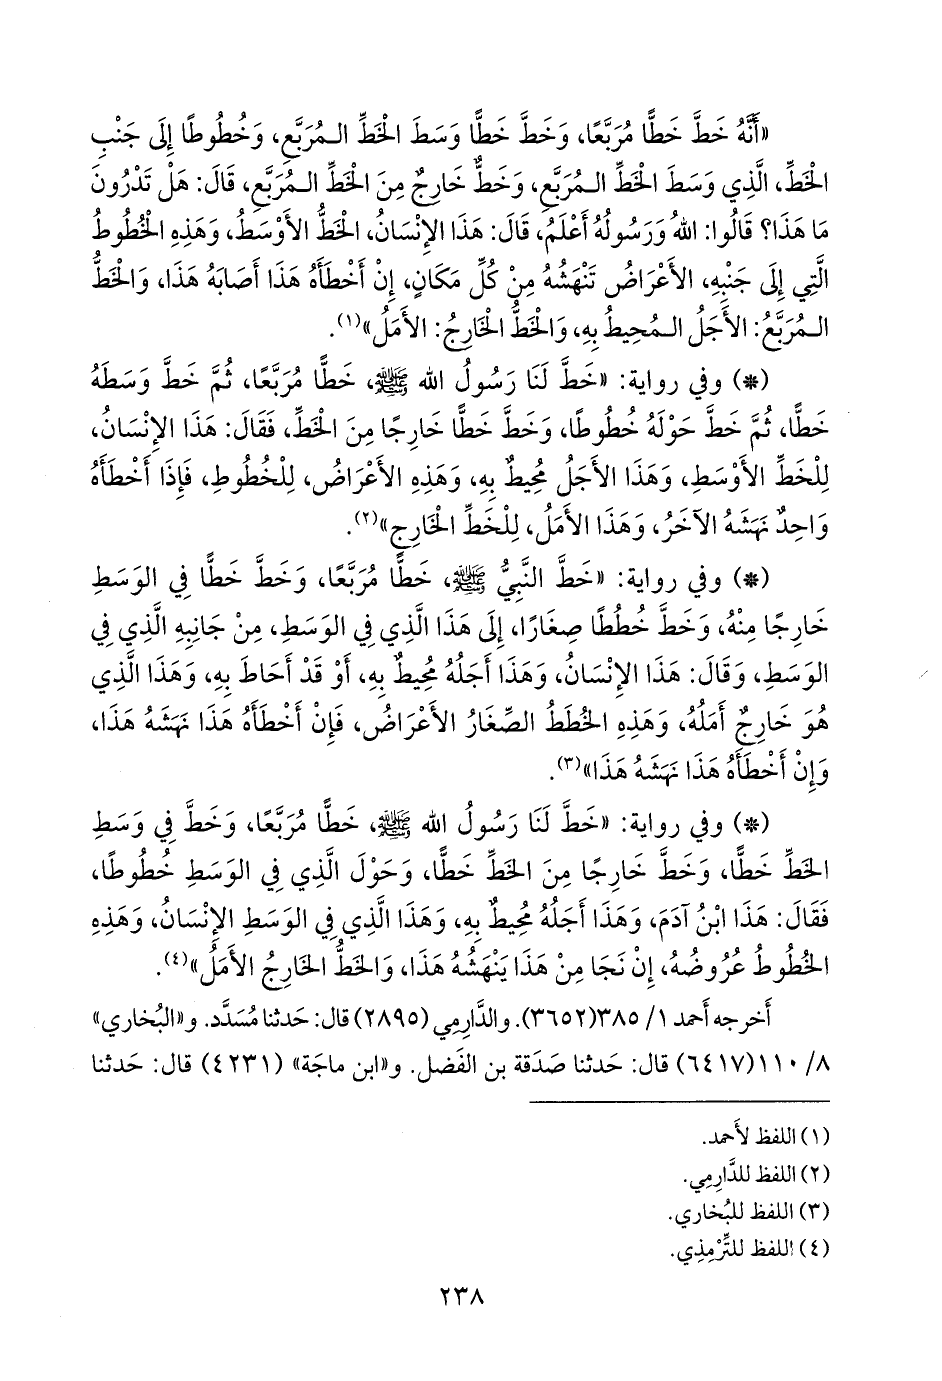 «أَنَّهُ خَطَّ خَطًّا مُرَبَّعًا، وَخَطَّ خَطًّا وَسَطَ الْخَطِّ الْمُرَبَّعِ، وَخُطُوطًا إِلَى جَنْبِ
الْخَطِّ، الَّذِي وَسَطَ الْخَطِّ الْمُرَبَّعِ، وَخَطٌّ خَارِجٌ مِنَ الْخَطِّ الْمُرَبَّعِ، قَالَ: هَلْ تَدْرُونَ
مَا هَذَا؟ قَالُوا: اللهُ وَرَسُولُهُ أَعْلَمُ، قَالَ: هَذَا الإِنْسَانُ، الْخَطُّ الأَوْسَطُ، وَهَذِهِ الْخُطُوطُ
الَّتِي إِلَى جَنْبِهِ، الأَعْرَاضُ تَنْهَشُهُ مِنْ كُلِّ مَكَانٍ، إِنْ أَخْطَأَهُ هَذَا أَصَابَهُ هَذَا، وَالْخَطُّ
الْمُرَبَّعُ: الأَجَلُ الْمُحِيطُ بِهِ، وَالْخَطُّ الْخَارِجُ: الأَمَلُ»(١).
(*) وفي رواية: «خَطَّ لَنَا رَسُولُ الله ﷺ، خَطًّا مُرَبَّعًا، ثُمَّ خَطَّ وَسَطَهُ
خَطًّا، ثُمَّ خَطَّ حَوْلَهُ خُطُوطًا، وَخَطَّ خَطًّا خَارِجًا مِنَ الْخَطِّ، فَقَالَ: هَذَا الإِنْسَانُ،
لِلْخَطِّ الأَوْسَطِ، وَهَذَا الأَجَلُ مُحِيطٌ بِهِ، وَهَذِهِ الأَعْرَاضُ، لِلْخُطُوطِ، فَإِذَا أَخْطَأَهُ
وَاحِدٌ نَهَشَهُ الآخَرُ، وَهَذَا الأَمَلُ، لِلْخَطِّ الْخَارِجِ»(٢).
(*) وفي رواية: «خَطَّ النَّبِيُّ ﷺ، خَطًّا مُرَبَّعًا، وَخَطَّ خَطًّا فِي الوَسَطِ
خَارِجًا مِنْهُ، وَخَطَّ خُطُطًا صِغَارًا، إِلَى هَذَا الَّذِي فِي الوَسَطِ، مِنْ جَانِبِهِ الَّذِي فِي
الوَسَطِ، وَقَالَ: هَذَا الإِنْسَانُ، وَهَذَا أَجَلُهُ مُحِيطٌ بِهِ، أَوْ قَدْ أَحَاطَ بِهِ، وَهَذَا الَّذِي
هُوَ خَارِجٌ أَمَلُهُ، وَهَذِهِ الْخُطَطُ الصِّغَارُ الأَعْرَاضُ، فَإِنْ أَخْطَأَهُ هَذَا نَهَشَهُ هَذَا،
وَإِنْ أَخْطَأَهُ هَذَا نَهَشَهُ هَذَا»(٣).
(*) وفي رواية: «خَطَّ لَنَا رَسُولُ الله ﷺ، خَطًّا مُرَبَّعًا، وَخَطَّ فِي وَسَطِ
الْخَطِّ خَطًّا، وَخَطَّ خَارِجًا مِنَ الْخَطِّ خَطًّا، وَحَوْلَ الَّذِي فِي الوَسَطِ خُطُوطًا،
فَقَالَ: هَذَا ابْنُ آدَمَ، وَهَذَا أَجَلُهُ مُحِيطٌ بِهِ، وَهَذَا الَّذِي فِي الوَسَطِ الإِنْسَانُ، وَهَذِهِ
الْخُطُوطُ عُرُوضُهُ، إِنْ نَجَا مِنْ هَذَا يَنْهَشُهُ هَذَا، وَالْخَطُّ الْخَارِجُ الأَمَلُ»(٤).
أَخرجه أحمد ١/ ٣٨٥(٣٦٥٢). والدَّارِمِي (٢٨٩٥) قال: حَدثنا مُسَدَّد. و«البُخاري»
٨/ ١١٠(٦٤١٧) قال: حَدثنا صَدَقة بن الفَضل. و«ابن ماجَة» (٤٢٣١) قال: حَدثنا
(١) اللفظ لأَحمد.
(٢) اللفظ للدَّارِمِي.
(٣) اللفظ للبُخاري.
(٤) اللفظ للتِّرْمِذِي.
٢٣٨